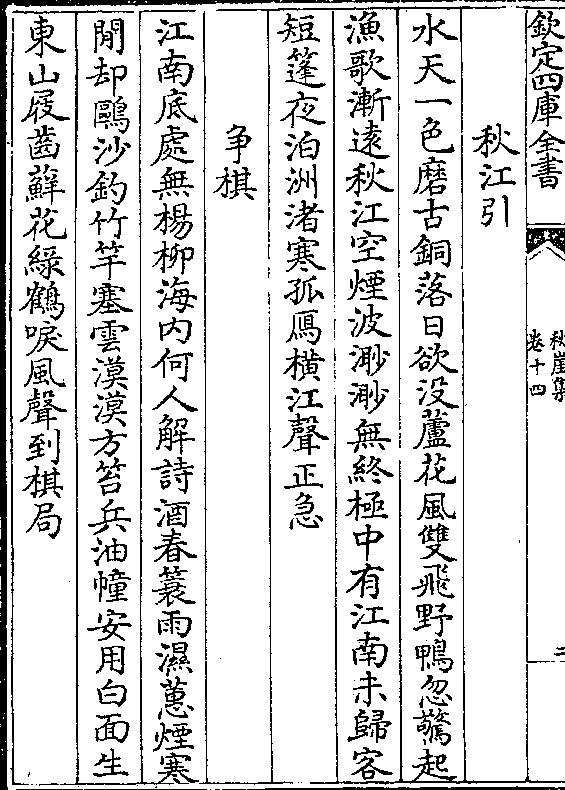 欽定四庫全書
秋崖集
卷十四
二
秋江引
水天一色磨古銅落日欲没蘆花風雙飛野鴨忽驚起
漁歌漸遠秋江空煙波渺渺無終極中有江南未歸客
短篷夜泊洲渚寒孤鴈横江聲正急
争棋
江南底處無楊柳海内何人解詩酒春簑雨濕蔥煙寒
閒却鷗沙釣竹竿塞雲漠漠方笞兵油幢安用白面生
東山屐齒蘚花緑鶴唳風聲到棋局